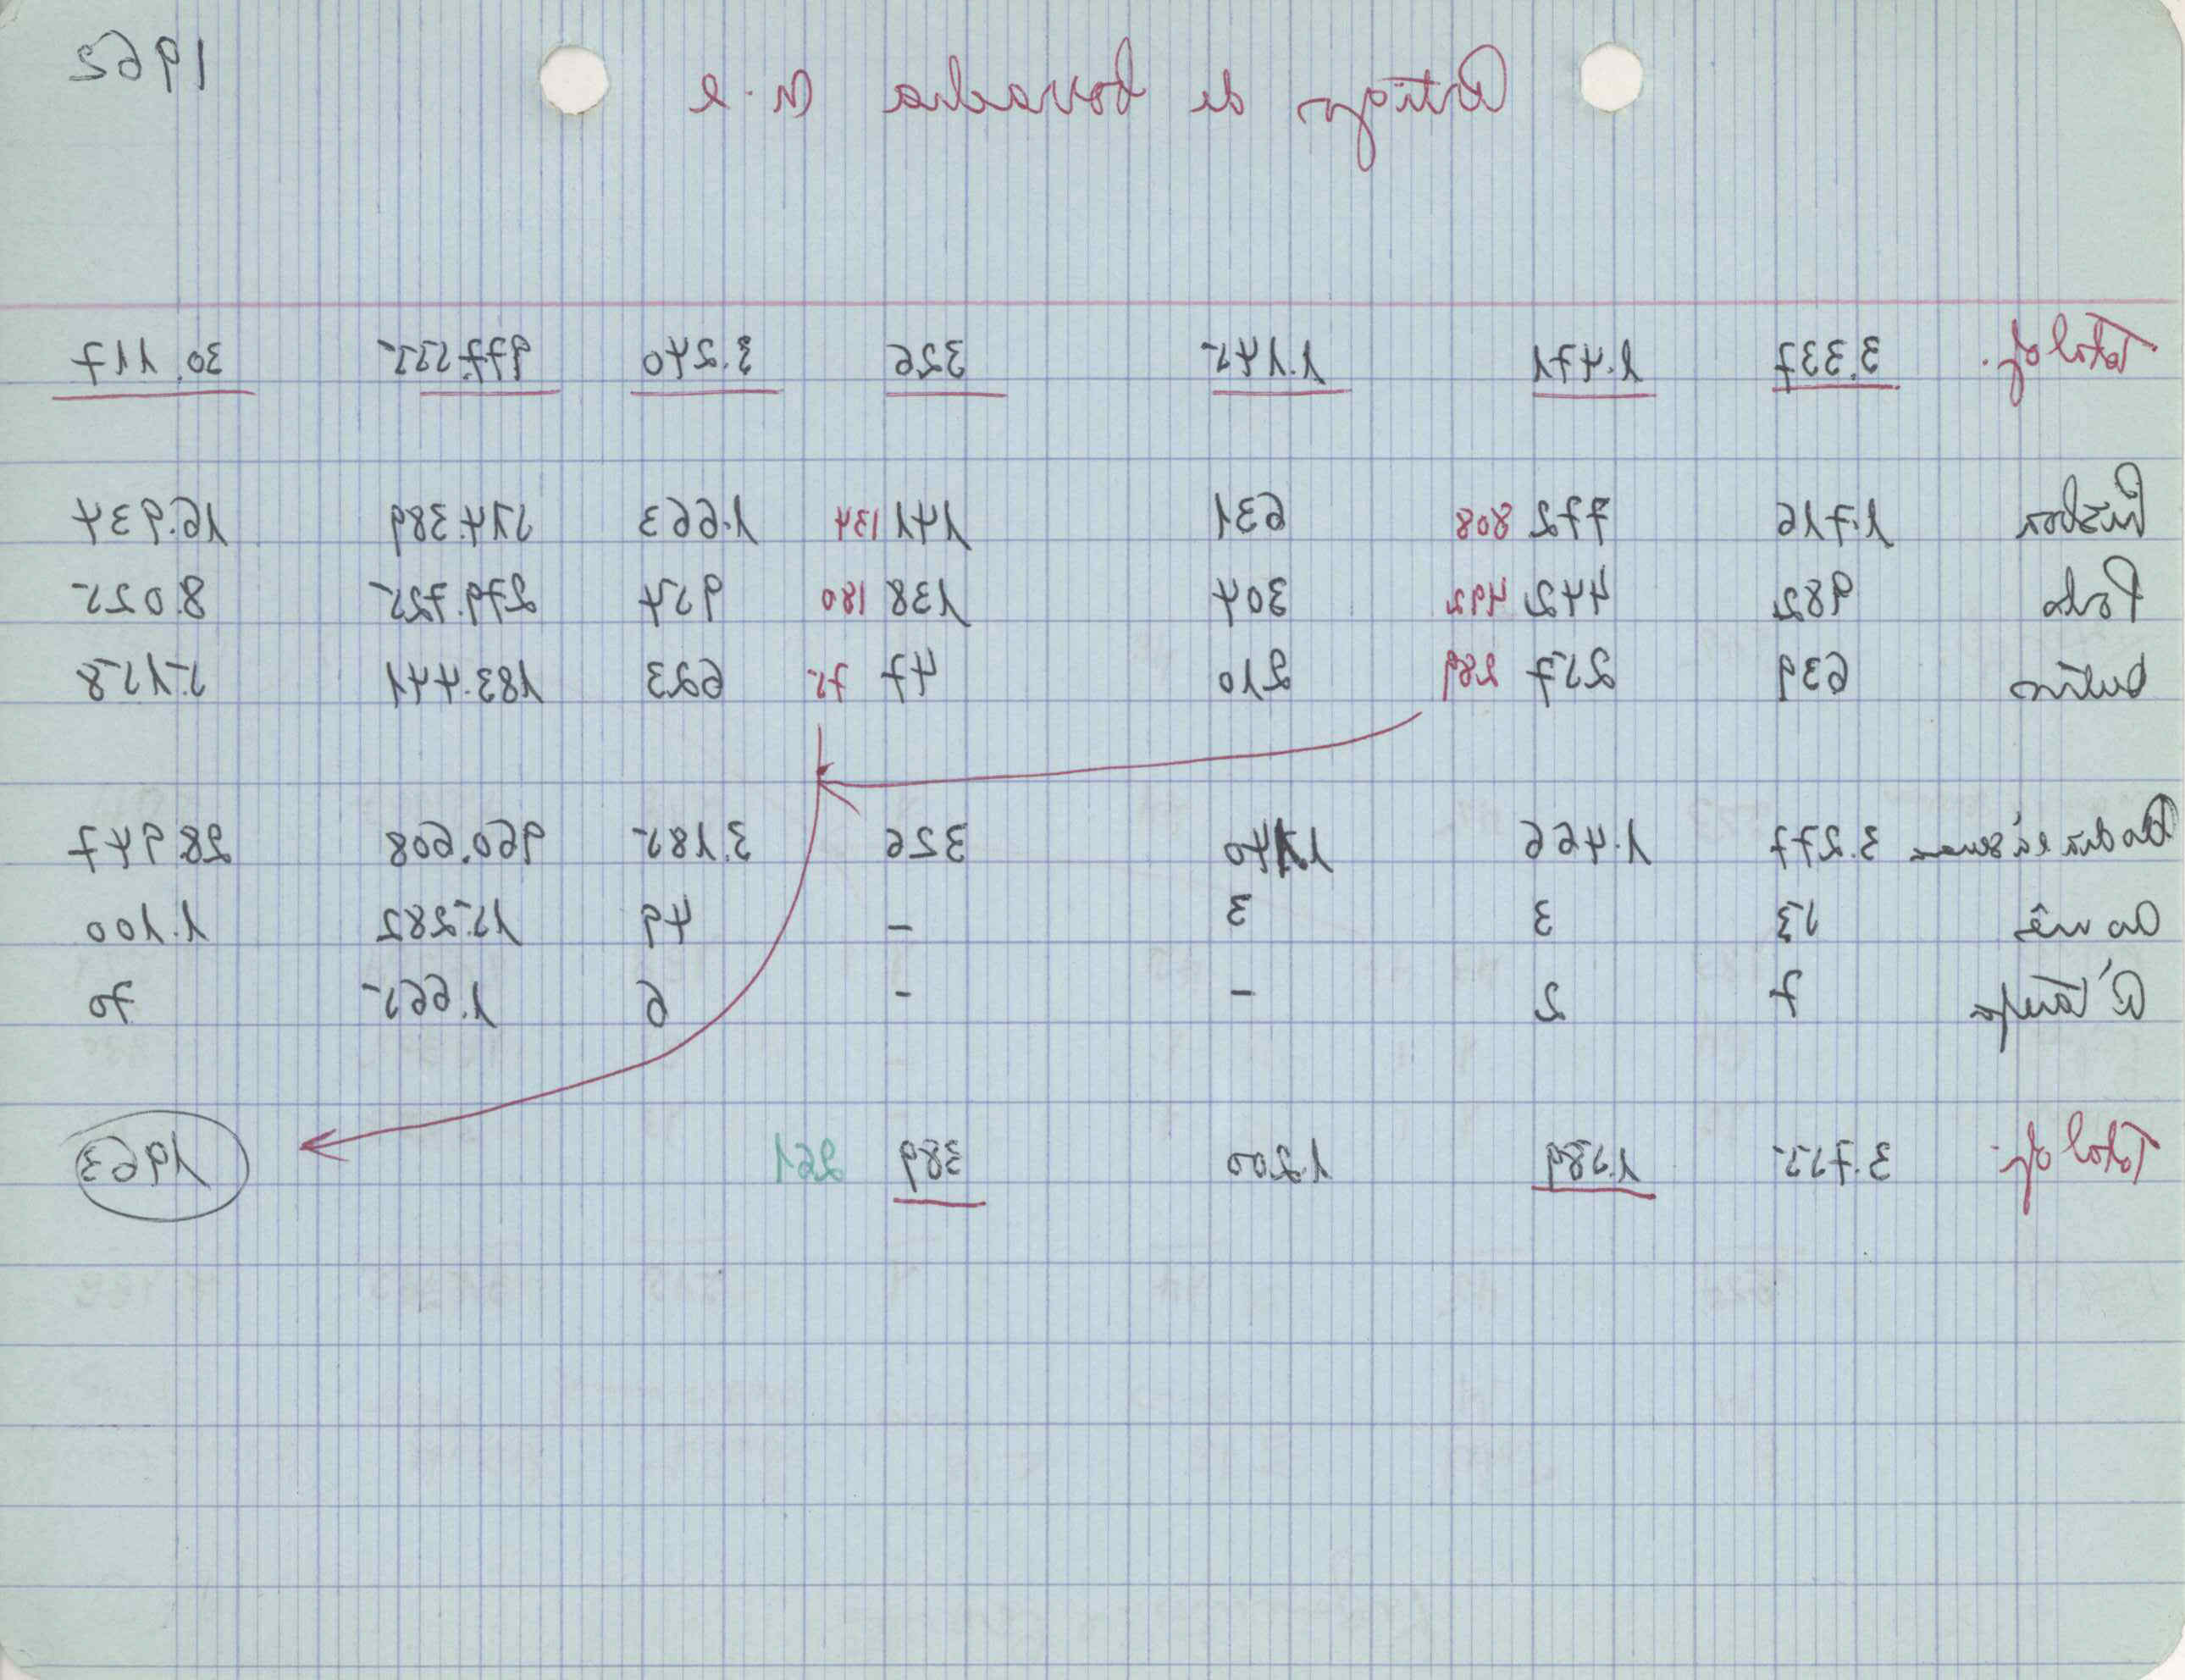 Artigos de borracha n.e 1962
Total of. 3.337 1.471 1.145 326 3.240 977.555 30.117
Lisboa 1.716 772 808 631 141 134 1.663 514.389 16.934
Porto 982 442 492 304 138 180 954 279.725 8.025
Outros 639 257 289 210 47 75 623 183.441 5.158
Ao dia e à semana 3.277 1.466 1140 326 3.185 960.608 28.947
Ao mês 53 3 3 - 49 15.282 1.100
À tarefa 7 2 - - 6 1.665 70
Total of. 3.755 1.589 1.200 389 261 1963